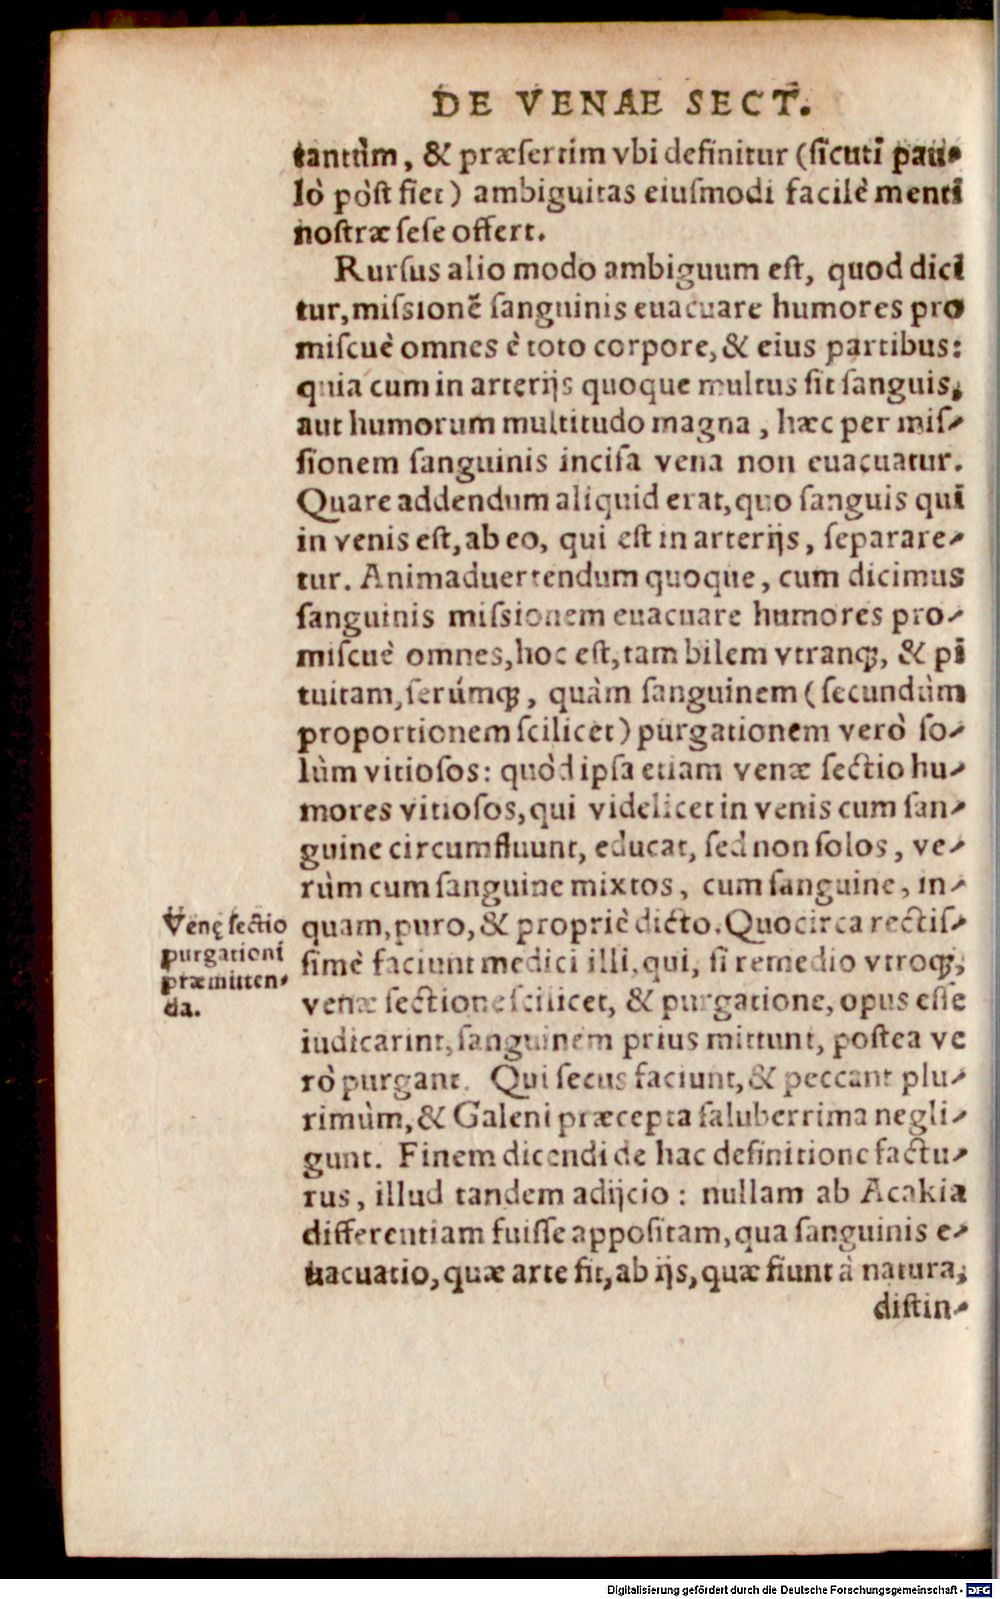 DE VENAE SECT.
tantùm, & præsertim vbi definitur (sicuti pau-
lò pòst fiet) ambiguitas eiusmodi facilè menti
nostræ sese offert.
Rursus alio modo ambiguum est, quod dici
tur, missionẽ sanguinis euacuare humores pro
miscuè omnes è toto corpore, & eius partibus:
quia cum in arterijs quoque multus sit sanguis,
aut humorum multitudo magna, hæc per mis-
sionem sanguinis incisa vena non euacuatur.
Quare addendum aliquid erat, quo sanguis qui
in venis est, ab eo, qui est in arterijs, separare-
tur. Animaduertendum quoque, cum dicimus
sanguinis missionem euacuare humores pro-
miscuè omnes, hoc est, tam bilem vtranq;, & pi
tuitam, serúmq;, quàm sanguinem (secundùm
proportionem scilicet) purgationem verò so-
lùm vitiosos: quòd ipsa etiam venæ sectio hu-
mores vitiosos, qui videlicet in venis cum san-
guine circumfluunt, educat, sed non solos, ve-
rùm cum sanguine mixtos, cum sanguine, in-
quam, puro, & propriè dicto. Quocirca rectis-
simè faciunt medici illi, qui, si remedio vtroq;,
venæ sectione scilicet, & purgatione, opus esse
iudicarint, sanguinem prius mittunt, postea ve
rò purgant. Qui secus faciunt, & peccant plu-
rimùm, & Galeni præcepta saluberrima negli-
gunt. Finem dicendi de hac definitione factu-
rus, illud tandem adijcio: nullam ab Acakia
differentiam fuisse appositam, qua sanguinis e-
uacuatio, quæ arte fit, ab ijs, quæ fiunt à natura,
distin-
Venę sectio
purgationi
præmitten-
da.
Digitalisierung gefördert durch die Deutsche Forschungsgemeinschaft - DFG